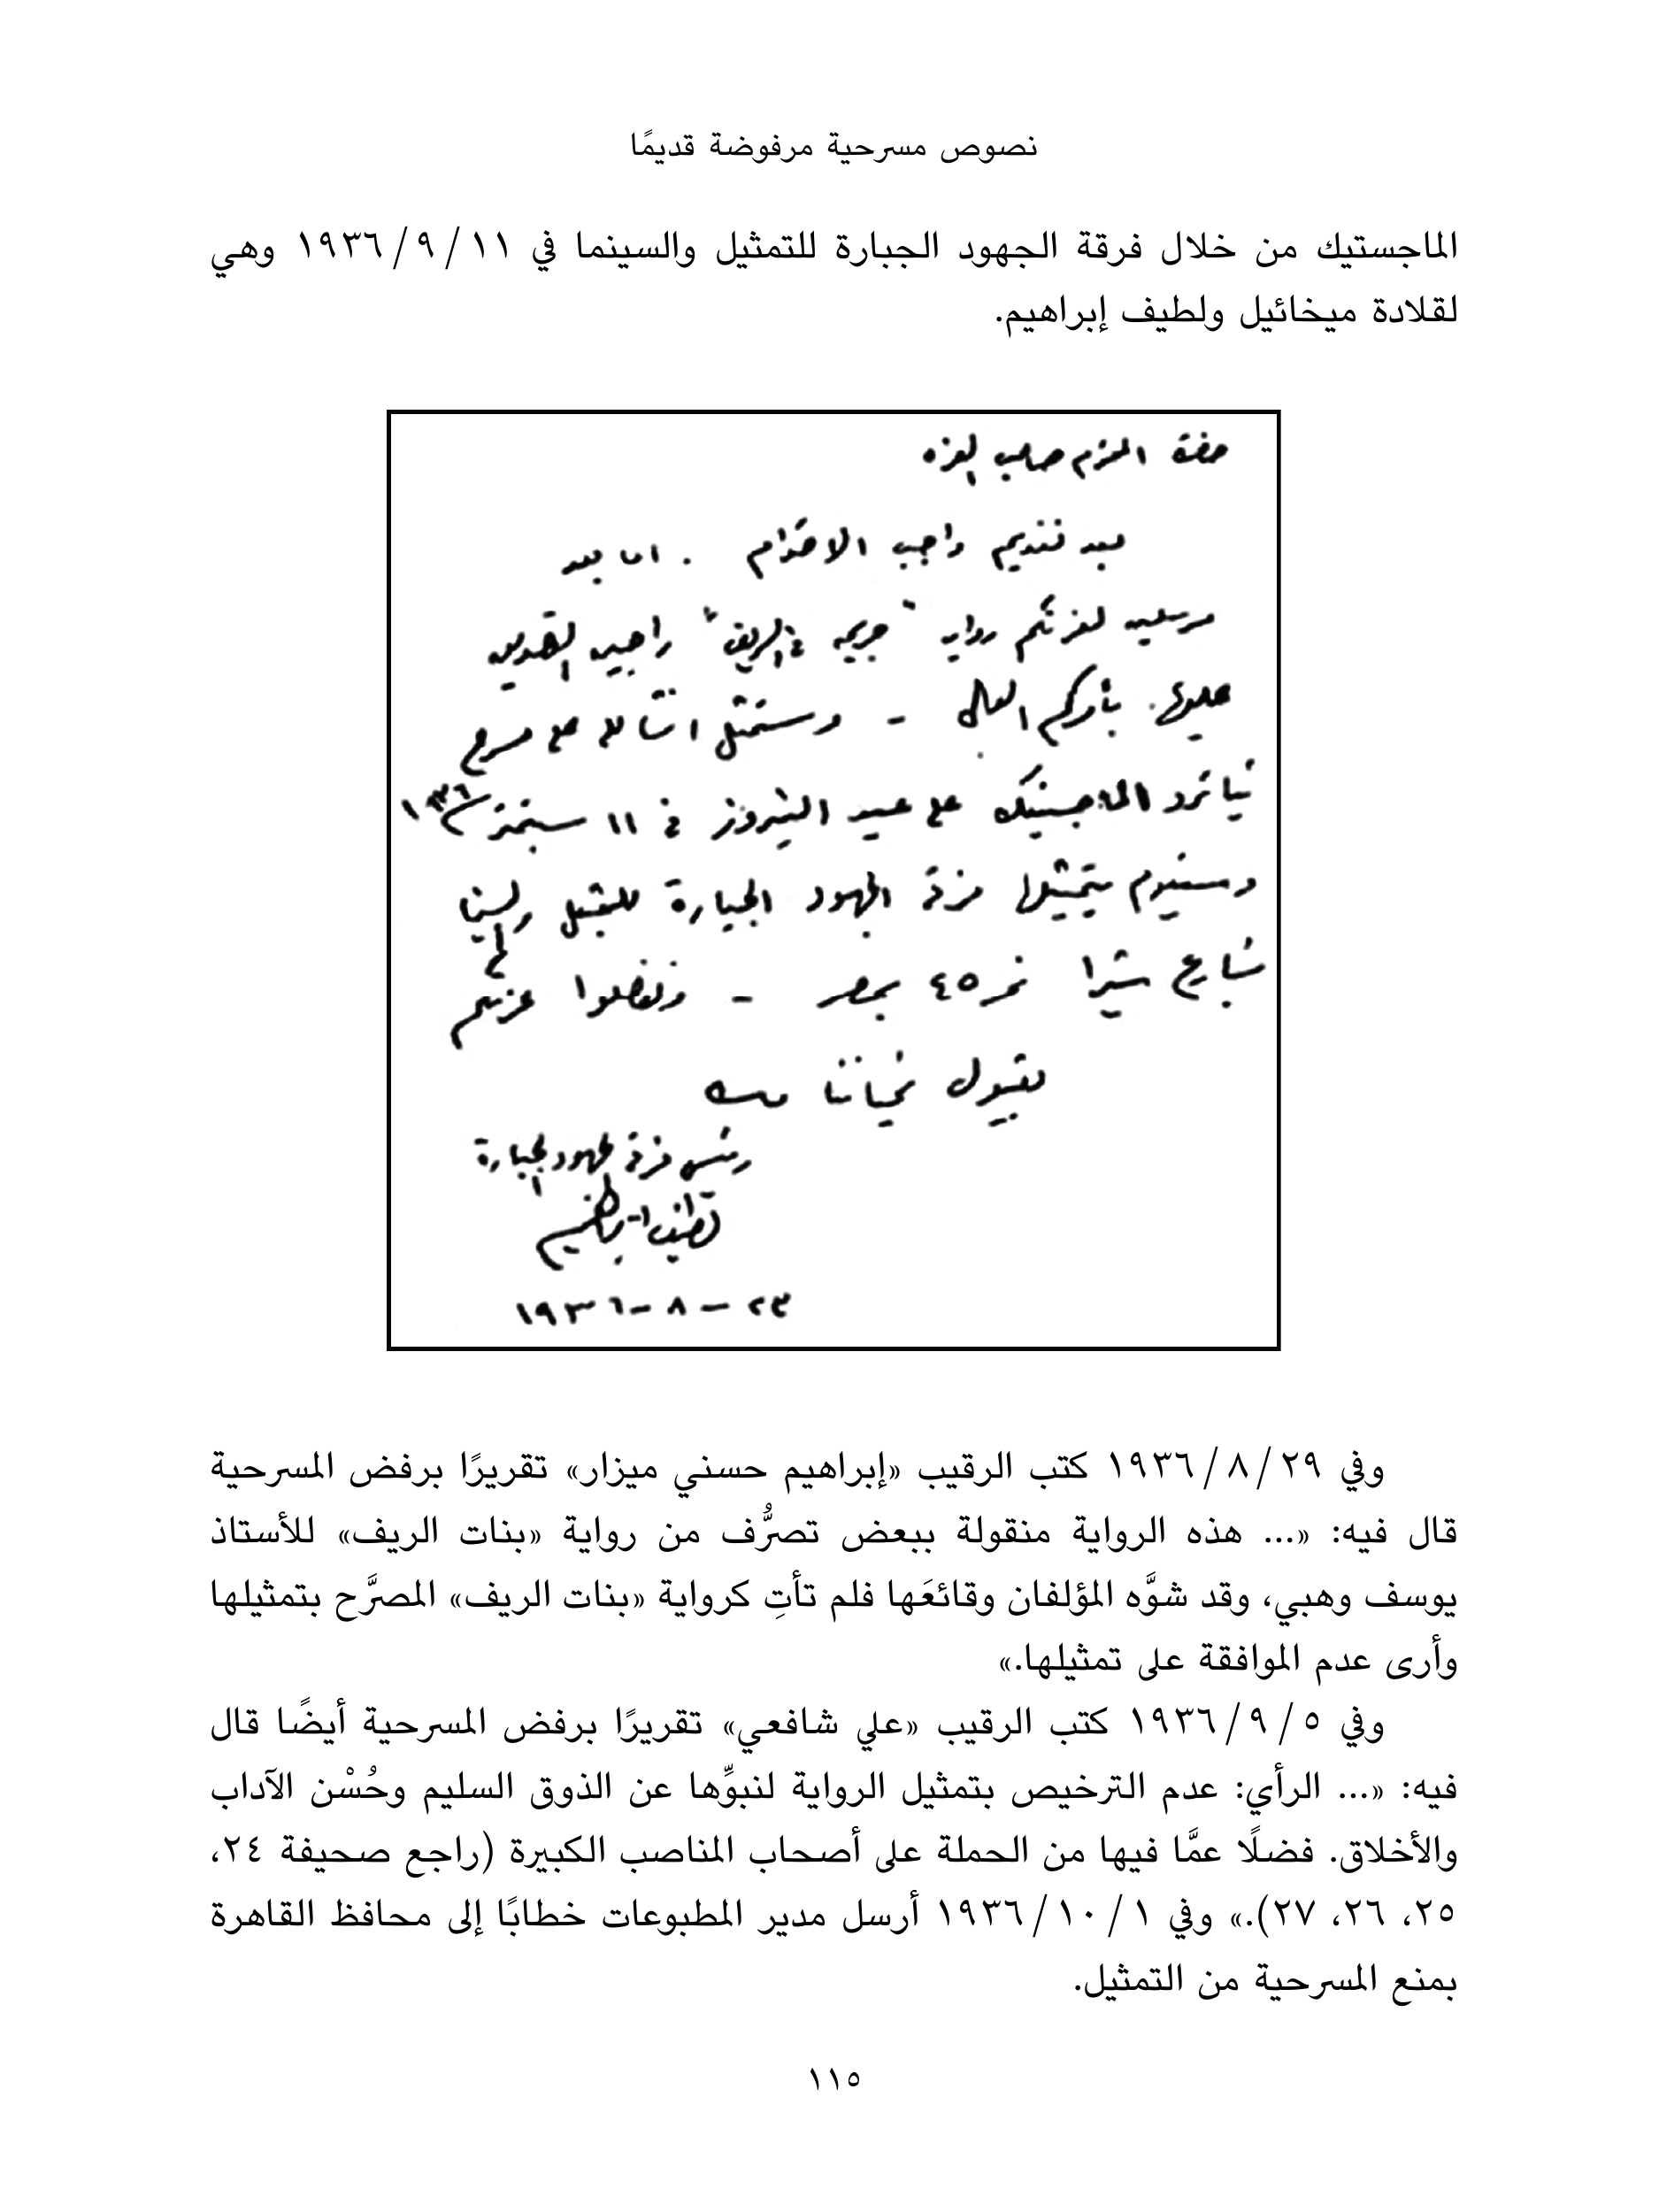 نصوص مسرحية مرفوضة قديمًا
الماجستيك من خلال فرقة الجهود الجبارة للتمثيل والسينما في ١١/ ٩/ ١٩٣٦ وهي
لقلادة ميخائيل ولطيف إبراهيم.
حضرة المحترم صاحب العزه
بعد تقديم واجب الاحترام . اما بعد
مرسليه لعزتكم رواية "جريمه في الريف" راجين التصديق
عليها بأمركم العالى - وستمثل انشالله على مسرح
تياترو الماجستيك على عيد النيروز فى ١١ سبتمبر ١٩٣٦
وستقوم بتمثيلها فرقة الجهود الجبارة للتمثيل والسينما
بشارع شبرا نمر ٤٥ بمصر - وتفضلوا عزتكم
بقبول تحياتنا
رئيس فرقة الجهود الجبارة
لطيف ابراهيم
٢٣ - ٨ - ١٩٣٦
وفي ٢٩/ ٨/ ١٩٣٦ كتب الرقيب «إبراهيم حسني ميزار» تقريرًا برفض المسرحية
قال فيه: «… هذه الرواية منقولة ببعض تصرُّف من رواية «بنات الريف» للأستاذ
يوسف وهبي، وقد شوَّه المؤلفان وقائعَها فلم تأتِ كرواية «بنات الريف» المصرَّح بتمثيلها
وأرى عدم الموافقة على تمثيلها.»
وفي ٥/ ٩/ ١٩٣٦ كتب الرقيب «علي شافعي» تقريرًا برفض المسرحية أيضًا قال
فيه: «… الرأي: عدم الترخيص بتمثيل الرواية لنبوِّها عن الذوق السليم وحُسْن الآداب
والأخلاق. فضلًا عمَّا فيها من الحملة على أصحاب المناصب الكبيرة (راجع صحيفة ٢٤،
٢٥، ٢٦، ٢٧).» وفي ١/ ١٠/ ١٩٣٦ أرسل مدير المطبوعات خطابًا إلى محافظ القاهرة
بمنع المسرحية من التمثيل.
١١٥